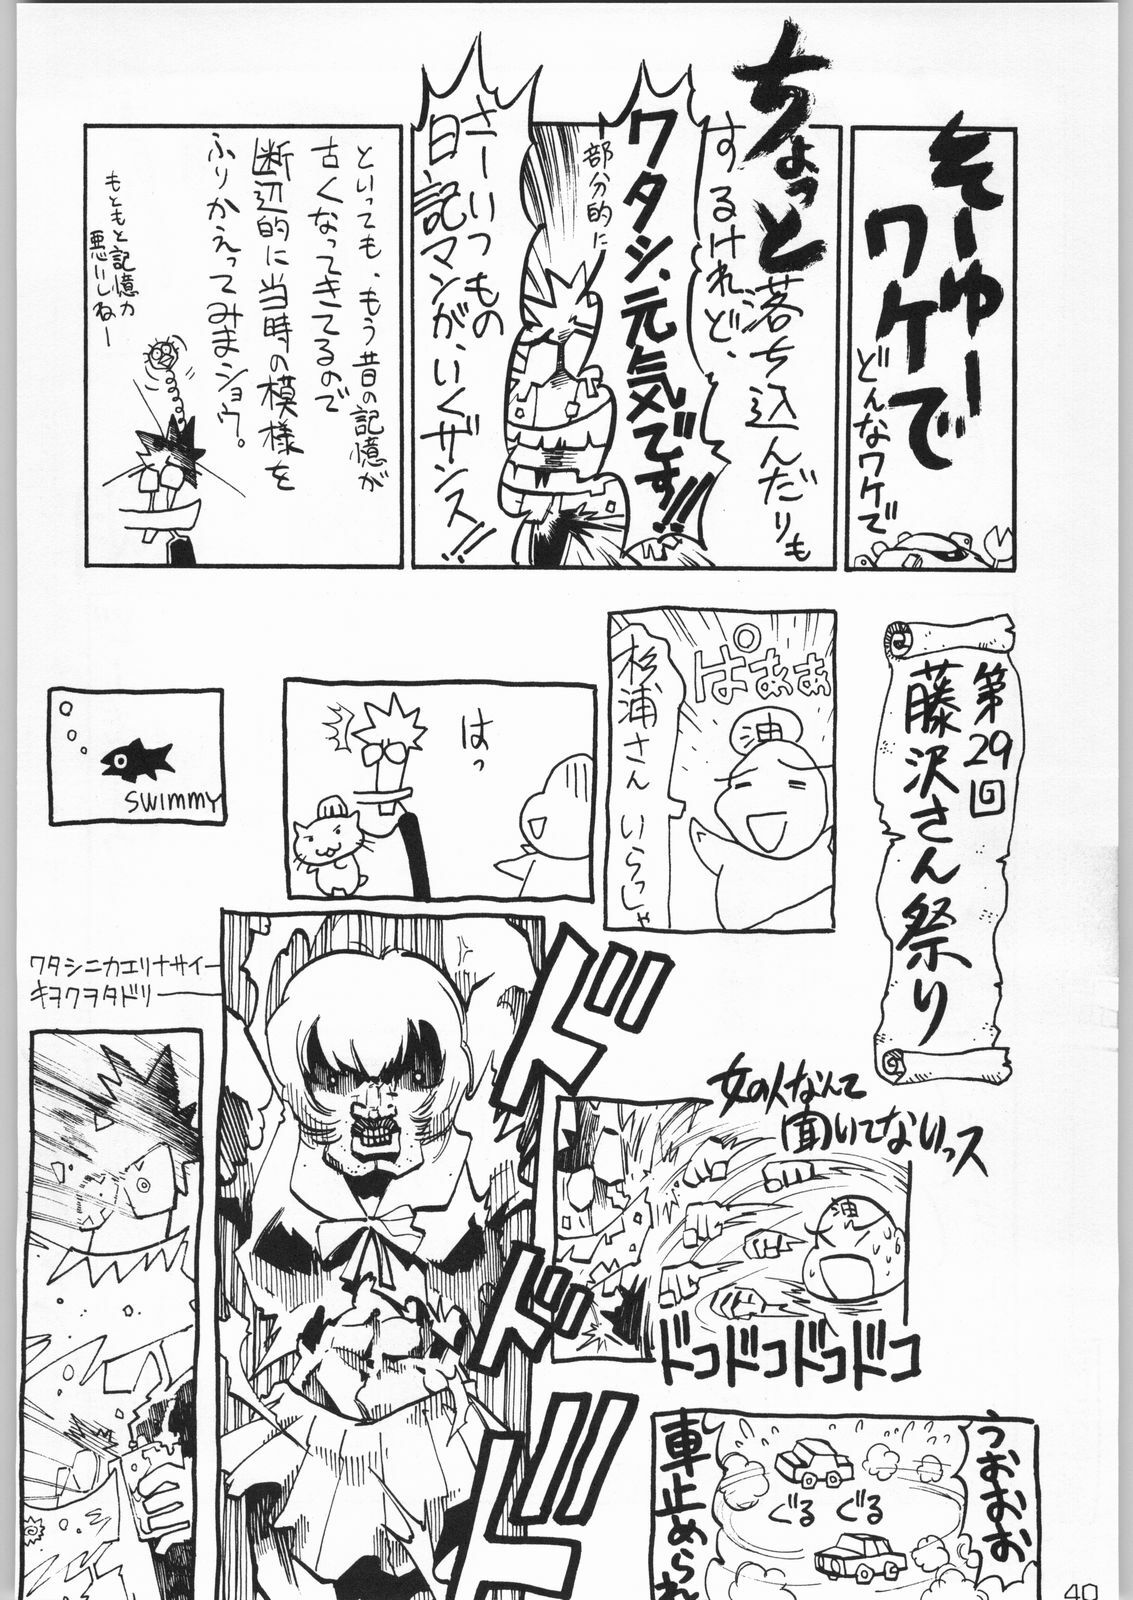 そーゆー
ワケで
どんなワケで
ちょっと落ち込んだりも
するけれど、
部分的に
ワタシ、元気です!!
さーいつもの
日記マンガ、いくザンス!!
といっても、もう昔の記憶が
古くなってきてるので
断辺的に当時の模様を
ふりかえってみまショウ。
もともと記憶力
悪いしねー
第29回
藤沢さん祭り
ぱぁぁぁ
油
杉浦さん
いらっしゃ
はっ
SWIMMY
ワタシニカエリナサイー
キヲクヲタドリー
ドドドド
女の人なんて
聞いてないっス
油
ドコドコドコドコ
うおおお
ぐる
ぐる
車止められ
40